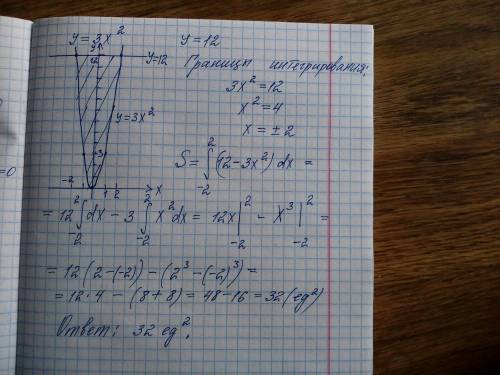 y = 3x² y = 12
y
12 y=12
Границы интегрирования:
3x² = 12
x² = 4
x = ± 2
y = 3x²
3
-2 1 2 x
S = ∫₋₂² (12 - 3x²) dx =
= 12 ∫₋₂² dx - 3 ∫₋₂² x² dx = 12x |₋₂² - x³ |₋₂² =
= 12 (2 - (-2)) - (2³ - (-2)³) =
= 12 · 4 - (8 + 8) = 48 - 16 = 32 (ед²)
Ответ: 32 ед².
=0